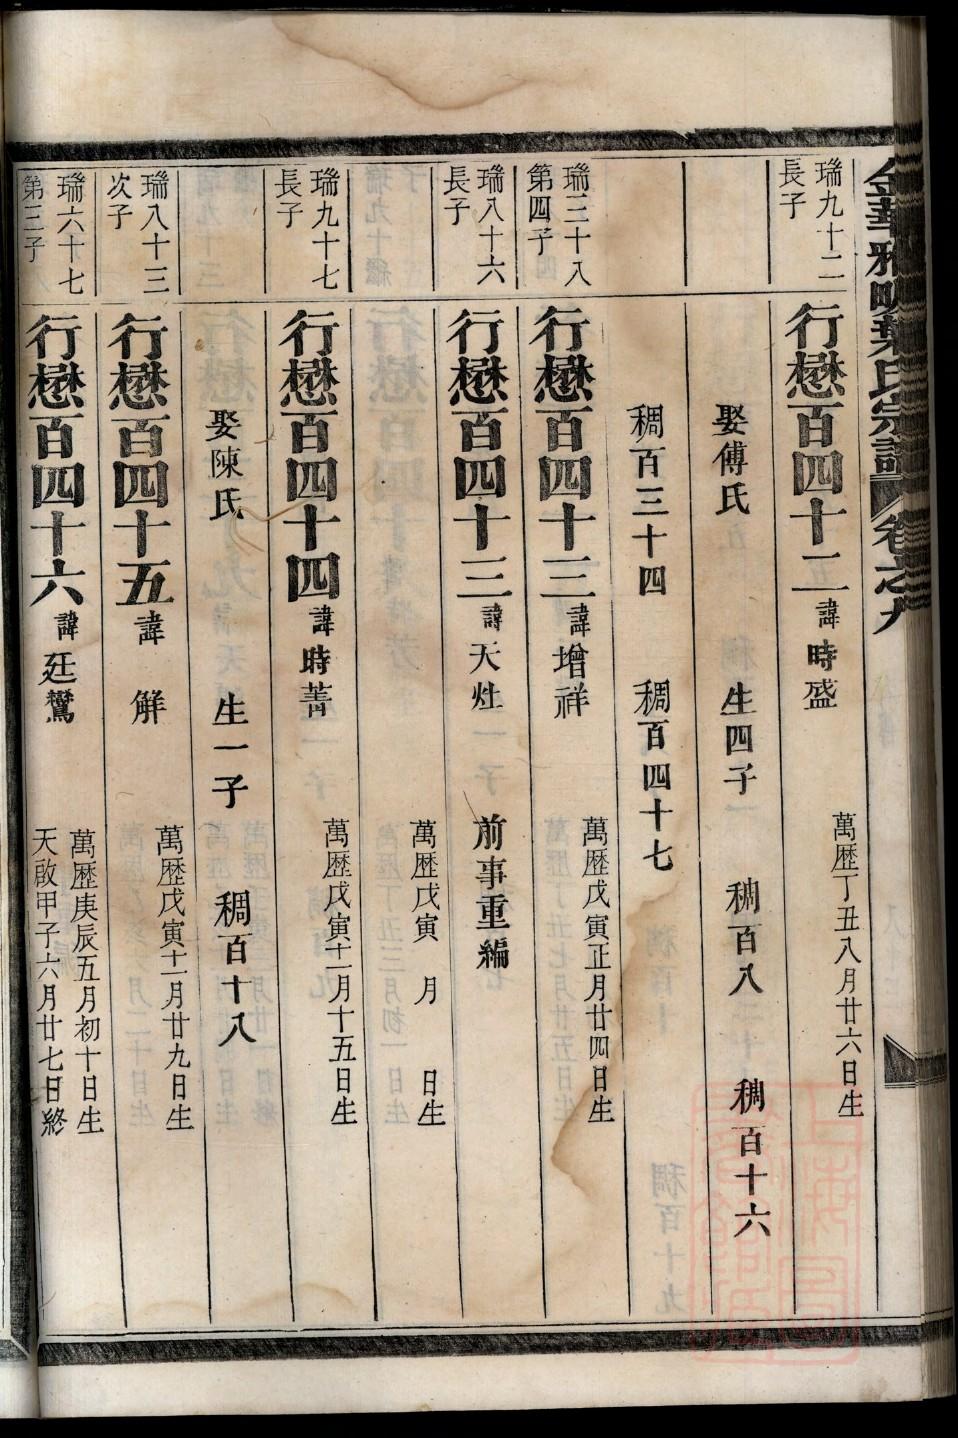 金華雅畈葉氏宗譜 卷之九
瑞九十二
長子
行懋百四十二 諱時盛
萬歷丁丑八月廿六日生
娶傅氏 生四子 稠百八 稠百十六
稠百三十四 稠百四十七
瑞三十八
第四子
行懋百四十三 諱增祥
萬歷戊寅正月廿四日生
瑞八十六
長子
行懋百四十三 諱天灶 前事重編
萬歷戊寅 月 日生
瑞九十七
長子
行懋百四十四 諱時菁
萬歷戊寅十一月十五日生
娶陳氏 生一子 稠百十八
瑞八十三
次子
行懋百四十五 諱 觧
萬歷戊寅十一月廿九日生
瑞六十七
第三子
行懋百四十六 諱廷鸞
萬歷庚辰五月初十日生
天啟甲子六月廿七日終